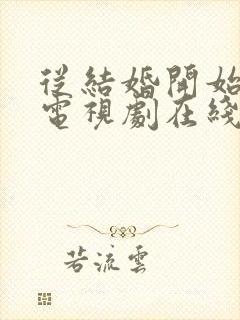 從結婚開始
電視劇在綫
若流雲